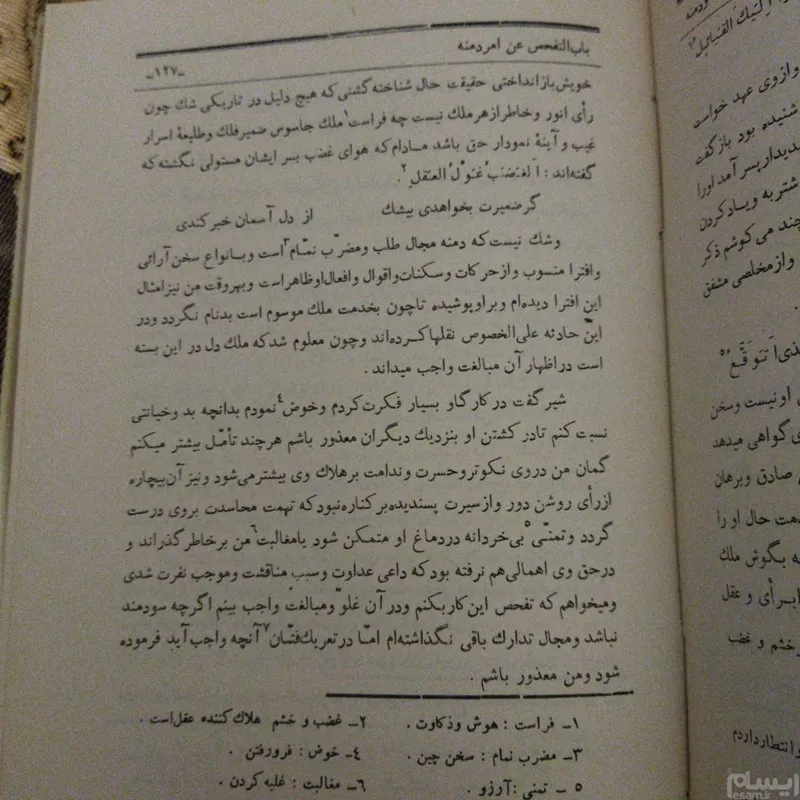 باب التفحص عن امر دمنه
ـ۱۲۷ـ
خویش بازانداختی حقیقت حال شناخته گشتی که هیچ دلیل در تاریکی شك چون
رأی انور و خاطر ازهر ملك نیست چه فراست۱ ملك جاسوس ضمیر فلك و طلیعهٔ اسرار
غیب و آینهٔ نمودار حق باشد مادام که هوای غضب بر ایشان مستولی نگشته که
گفته‌اند : اَلغَضَبُ غُولُ العَقلِ۲.
گر ضمیرت بخواهدی بیشك از دل آسمان خبر کندی
و شك نیست که دمنه مجال طلب و مضرّب نمّام۳ است و بانواع سخن آرائی
و افترا منسوب و از حرکات و سکنات و اقوال و افعال او ظاهر است و بهر وقت من نیز امثال
این افترا دیده‌ام و بر او پوشیده تا چون بخدمت ملك موسوم است بدنام نگردد و در
این حادثه علی‌الخصوص نقلها کرده‌اند و چون معلوم شد که ملك دل در این بسته
است در اظهار آن مبالغت واجب میداند .
شیر گفت در کار گاو بسیار فکرت کردم و خوض۴ نمودم بدانچه بد و خیانتی
نسبت کنم تا در کشتن او بنزدیك دیگران معذور باشم هر چند تأمّل بیشتر میکنم
گمان من در وی نکوتر و حسرت و ندامت بر هلاك وی بیشتر می‌شود و نیز آن بیچاره
از رأی روشن دور و از سیرت پسندیده بر کناره نبود که تهمت محاسدت بروی درست
گردد و تمنّی۵ بی‌خردانه در دماغ او متمکن شود یا مغالبت۶ من بر خاطر گذراند و
در حق وی اهمالی هم نرفته بود که داعی عداوت و سبب مناقشت و موجب نفرت شدی
و میخواهم که تفحص این کار بکنم و در آن غلوّ و مبالغت واجب بینم اگر چه سودمند
نباشد و مجال تدارك باقی نگذاشته‌ام امّا در تعریك فتّان۷ آنچه واجب آید فرموده
شود و من معذور باشم .
۱ـ فراست : هوش و ذکاوت . ۲ـ غضب و خشم هلاك کننده عقل است .
۳ـ مضرب نمام : سخن چین . ۴ـ خوض : فرو رفتن .
۵ ـ تمنی : آرزو . ۶ـ مغالبت : غلبه کردن .
و از وی عهد خواست
شنیده بود باز گفت
دیدار پسر آمد او را
شتربه و یاد کردن
چند می کوشم ذکر
و از مخلصی مشفق
او نیست و سخن
گواهی میدهد
صادق و برهان
حال او را
بگوش ملك
رأی و عقل
خشم و غضب
و انتظار داردم
ایسام
esam.ir